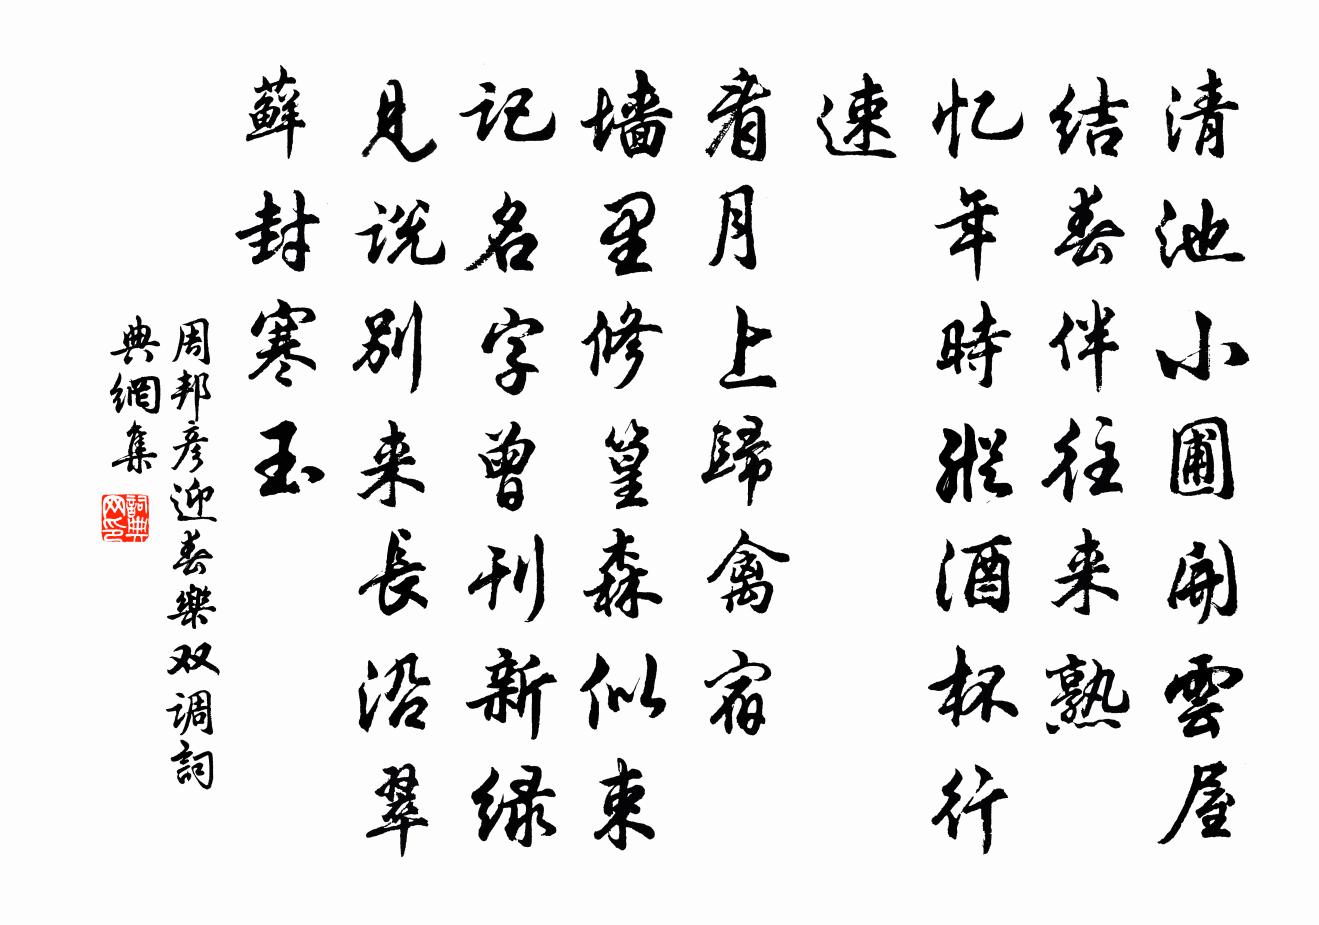 清池小圃開雲屋
结春伴往来熟
忆年時縱酒杯行
速
看月上歸禽宿
墙里修篁森似束
记名字曾刊新绿
見说别来長沿翠
蘚封寒玉
周邦彦迎春樂双调詞
典網集
詞典
网印